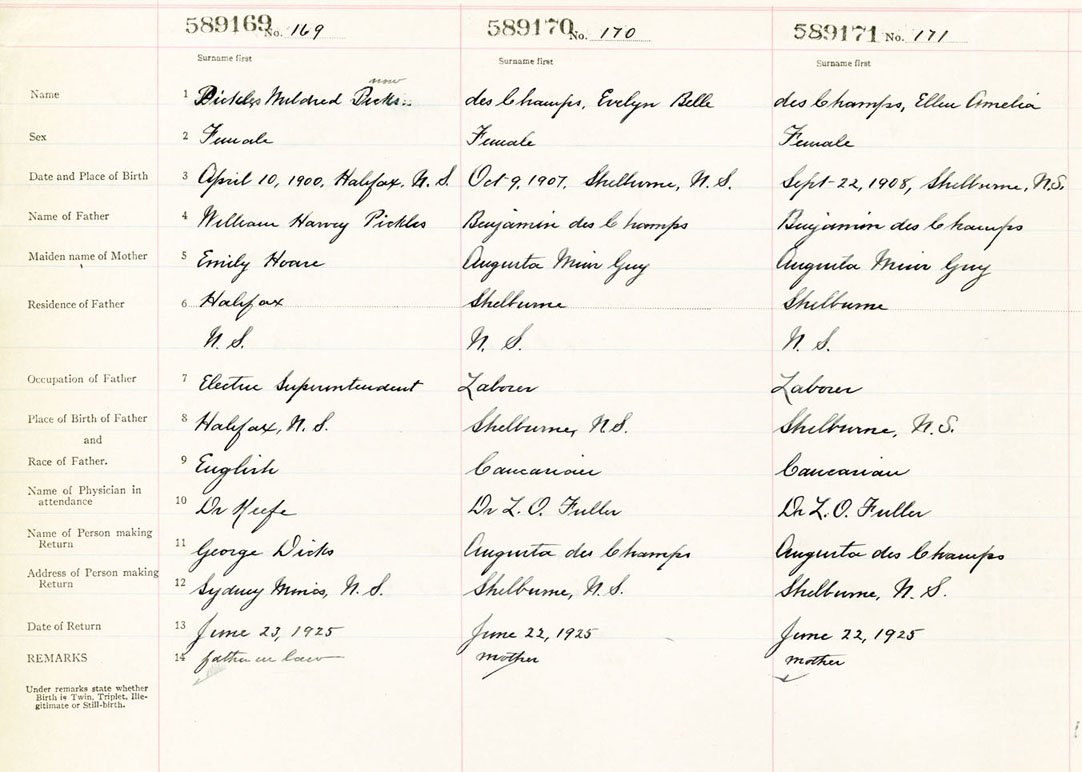 589169 No. 169 589170 No. 170 589171 No. 171
Surname first Surname first Surname first
now
Name 1 Pickles Mildred Dicks des Champs, Evelyn Belle des Champs, Ellen Amelia
Sex 2 Female Female Female
Date and Place of Birth 3 April 10, 1900, Halifax, N.S. Oct 9, 1907, Shelburne, N.S. Sept 22, 1908, Shelburne, N.S.
Name of Father 4 William Harvey Pickles Benjamin des Champs Benjamin des Champs
Maiden name of Mother 5 Emily Hoare Augusta Muir Guy Augusta Muir Guy
Residence of Father 6 Halifax Shelburne Shelburne
N.S. N.S. N.S.
Occupation of Father 7 Electric Superintendent Laborer Laborer
Place of Birth of Father 8 Halifax, N.S. Shelburne, N.S. Shelburne, N.S.
and
Race of Father. 9 English Caucasian Caucasian
Name of Physician in
attendance 10 Dr Keefe Dr L. O. Fuller Dr L. O. Fuller
Name of Person making
Return 11 George Dicks Augusta des Champs Augusta des Champs
Address of Person making
Return 12 Sydney Mines, N.S. Shelburne, N.S. Shelburne, N.S.
Date of Return 13 June 23, 1925 June 22, 1925 June 22, 1925
REMARKS 14 father in law mother mother
Under remarks state whether
Birth is Twin, Triplet, Ille-
gitimate or Still-birth.